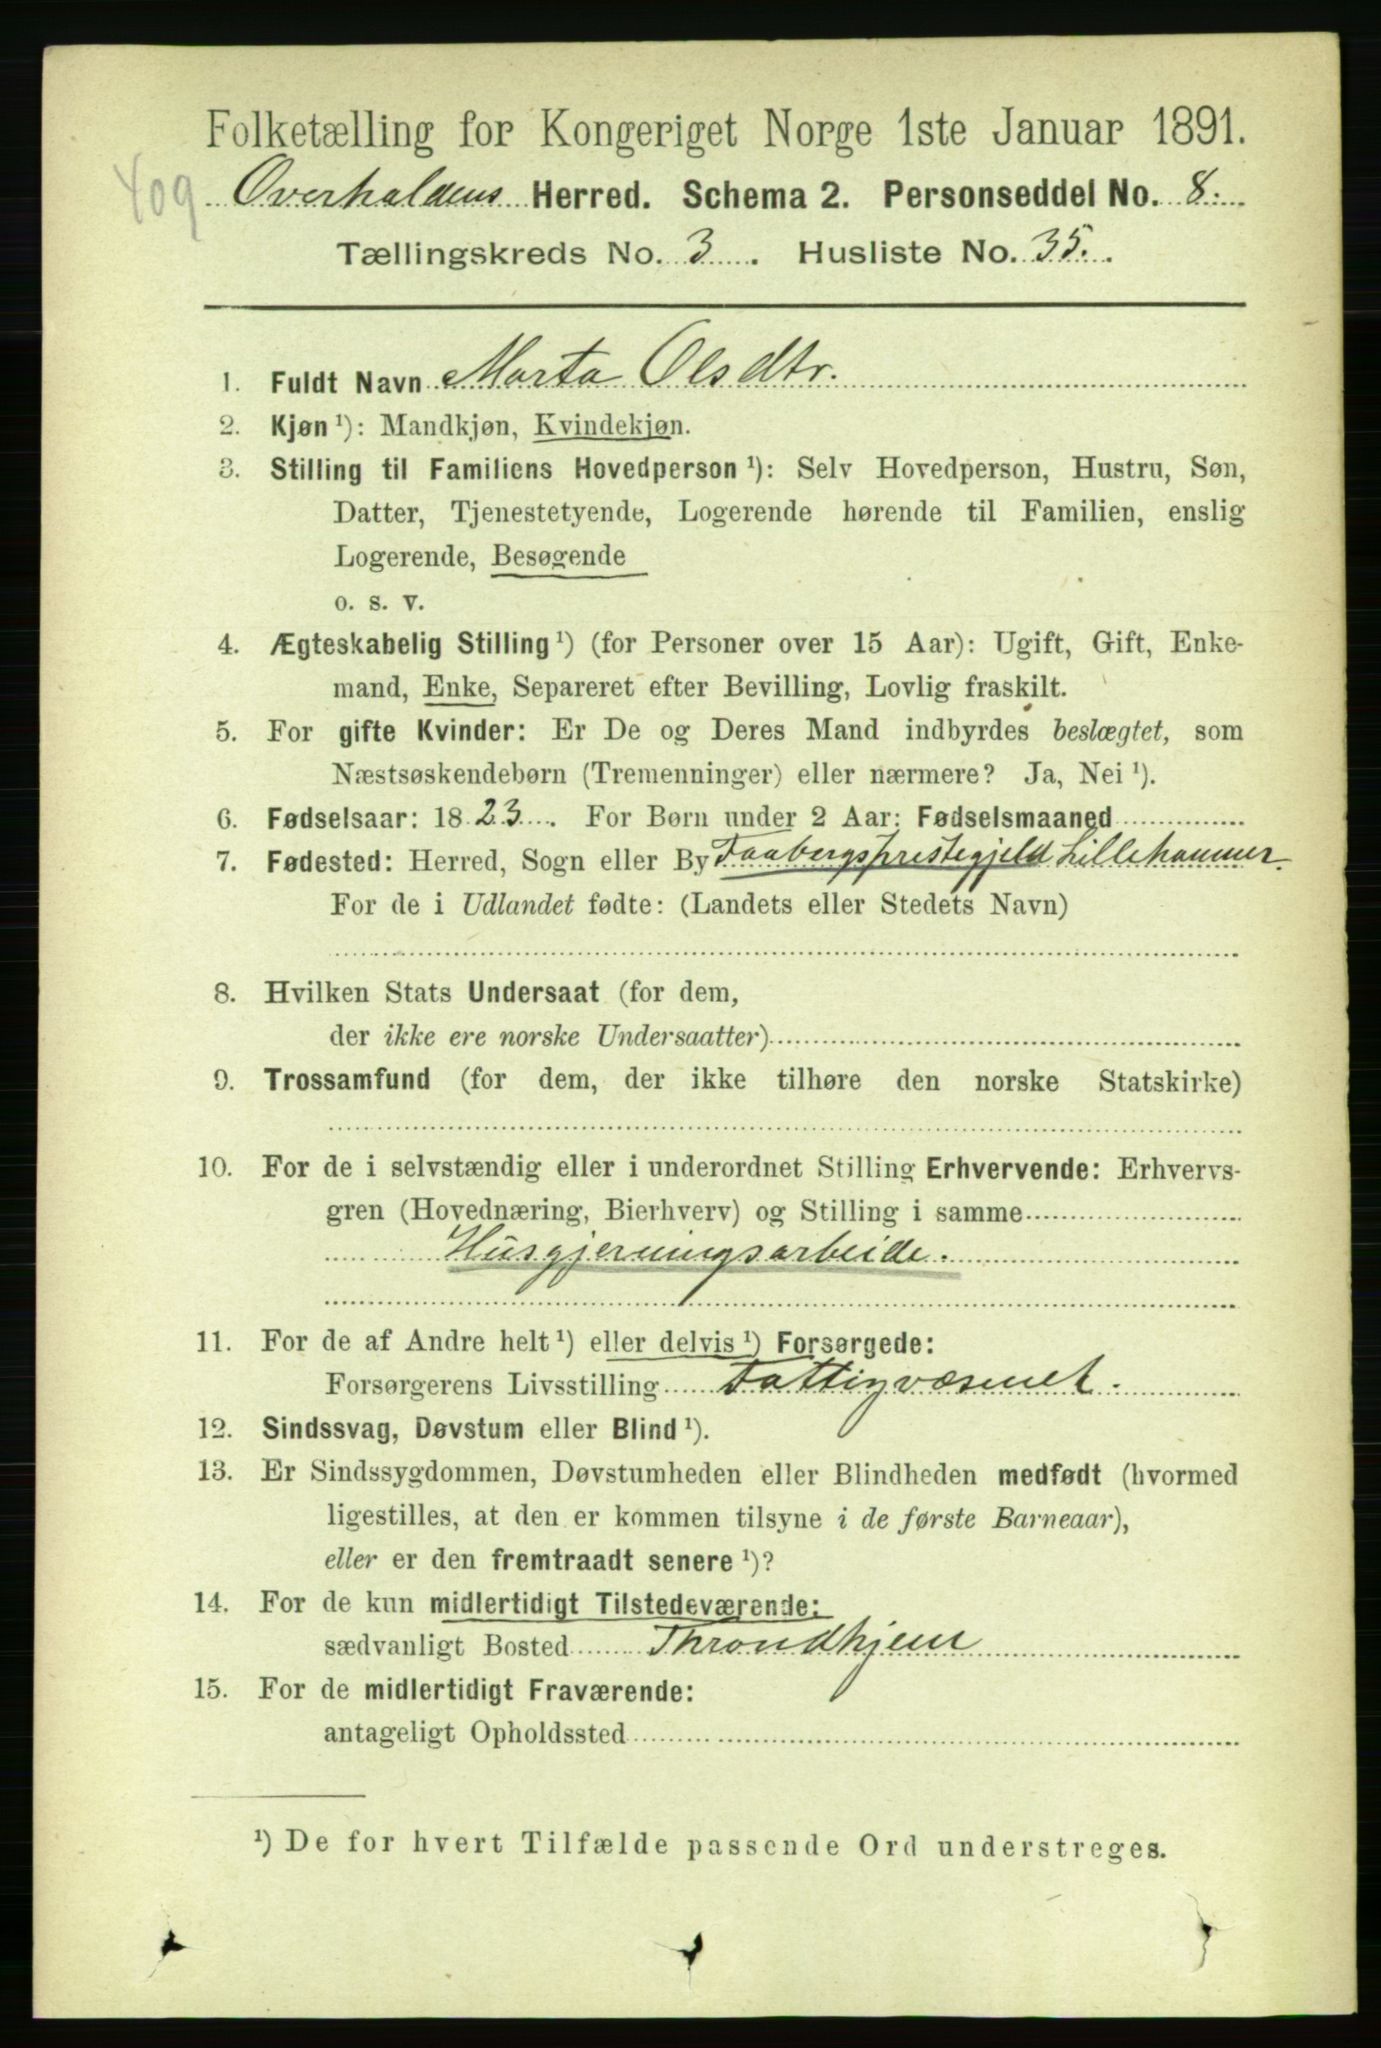 Folketælling for Kongeriget Norge 1ste Januar 1891.
409
Overhaldens Herred. Schema 2. Personseddel No. 8.
Tællingskreds No. 3. Husliste No. 35.
1. Fuldt Navn Marta Olsdtr.
2. Kjøn ¹): Mandkjøn, Kvindekjøn.
3. Stilling til Familiens Hovedperson ¹): Selv Hovedperson, Hustru, Søn,
Datter, Tjenestetyende, Logerende hørende til Familien, enslig
Logerende, Besøgende
o. s. v.
4. Ægteskabelig Stilling ¹) (for Personer over 15 Aar): Ugift, Gift, Enke-
mand, Enke, Separeret efter Bevilling, Lovlig fraskilt.
5. For gifte Kvinder: Er De og Deres Mand indbyrdes beslægtet, som
Næstsøskendebørn (Tremenninger) eller nærmere? Ja, Nei ¹).
6. Fødselsaar: 1823. For Børn under 2 Aar: Fødselsmaaned
7. Fødested: Herred, Sogn eller By Faabergsprestegjeld Lillehammer.
For de i Udlandet fødte: (Landets eller Stedets Navn)
8. Hvilken Stats Undersaat (for dem,
der ikke ere norske Undersaatter)
9. Trossamfund (for dem, der ikke tilhøre den norske Statskirke)
10. For de i selvstændig eller i underordnet Stilling Erhvervende: Erhvervs-
gren (Hovednæring, Bierhverv) og Stilling i samme
Husgjerningsarbeide.
11. For de af Andre helt ¹) eller delvis ¹) Forsørgede:
Forsørgerens Livsstilling Fattigvæsenet.
12. Sindssvag, Døvstum eller Blind ¹).
13. Er Sindssygdommen, Døvstumheden eller Blindheden medfødt (hvormed
ligestilles, at den er kommen tilsyne i de første Barneaar),
eller er den fremtraadt senere ¹)?
14. For de kun midlertidigt Tilstedeværende:
sædvanligt Bosted Throndhjem
15. For de midlertidigt Fraværende:
antageligt Opholdssted
¹) De for hvert Tilfælde passende Ord understreges.